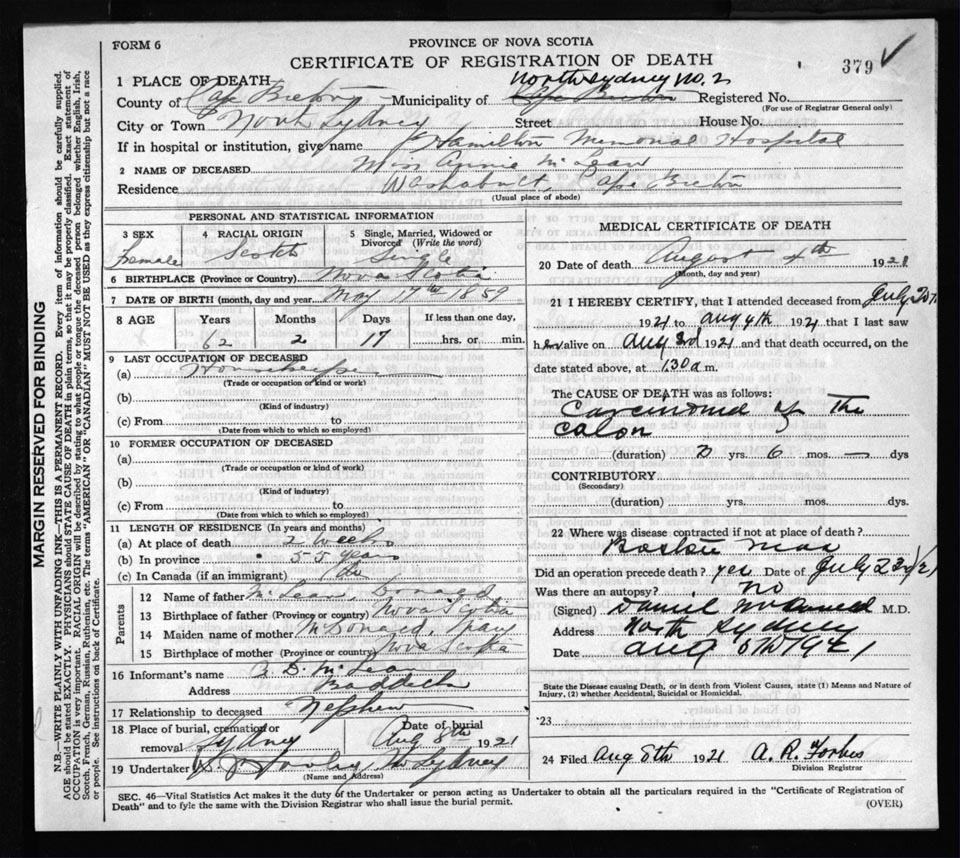 FORM 6
PROVINCE OF NOVA SCOTIA
CERTIFICATE OF REGISTRATION OF DEATH
379
MARGIN RESERVED FOR BINDING
N.B.—WRITE PLAINLY WITH UNFADING INK—THIS IS A PERMANENT RECORD. Every item of information should be carefully supplied.
AGE should be stated EXACTLY. PHYSICIANS should STATE CAUSE OF DEATH in plain terms, so that it may be properly classified. Exact statement of
OCCUPATION is very important. RACIAL ORIGIN will be described by stating to what people or tongue the deceased person belonged whether English, Irish,
Scotch, French, German, Russian, Ruthenian, etc. The terms "AMERICAN" OR "CANADIAN" MUST NOT BE USED as they express citizenship but not a race
or people. See instructions on back of Certificate.
North Sydney No. 2
1 PLACE OF DEATH
County of Cape Breton Municipality of Cape Breton Registered No.
(For use of Registrar General only)
City or Town North Sydney Street House No.
If in hospital or institution, give name Hamilton Memorial Hospital
2 NAME OF DECEASED Miss Annie McLean
Residence Washabuct, Cape Breton
(Usual place of abode)
PERSONAL AND STATISTICAL INFORMATION
3 SEX 4 RACIAL ORIGIN 5 Single, Married, Widowed or Divorced (Write the word)
Female Scotch Single
6 BIRTHPLACE (Province or Country) Nova Scotia
7 DATE OF BIRTH (month, day and year) May 17th 1859
8 AGE Years Months Days If less than one day,
62 2 17 hrs. or min.
9 LAST OCCUPATION OF DECEASED
(a) Housekeeper
(Trade or occupation or kind or work)
(b)
(Kind of industry)
(c) From to
(Date from which to which so employed)
10 FORMER OCCUPATION OF DECEASED
(a)
(Trade or occupation or kind of work)
(b)
(Kind of industry)
(c) From to
(Date from which to which so employed)
11 LENGTH OF RESIDENCE (In years and months)
(a) At place of death 2 weeks
(b) In province 55 years
(c) In Canada (if an immigrant)
Parents
12 Name of father McLean, Donald
13 Birthplace of father (Province or country) Nova Scotia
14 Maiden name of mother McDonald, Mary
15 Birthplace of mother (Province or country) Nova Scotia
16 Informant's name D. McLean
Address Baddeck
17 Relationship to deceased Nephew
18 Place of burial, cremation or removal Sydney Date of burial Aug 8th 1921
19 Undertaker N Sydney
(Name and Address)
MEDICAL CERTIFICATE OF DEATH
20 Date of death August 4th 1921
(Month, day and year)
21 I HEREBY CERTIFY, that I attended deceased from July 20th
1921 to Aug 4th 1921 that I last saw
her alive on Aug 3d 1921 and that death occurred, on
date stated above, at 1.30 a m.
The CAUSE OF DEATH was as follows:
Carcinoma of the
Colon
(duration) yrs. 6 mos. — dys
CONTRIBUTORY
(Secondary)
(duration) yrs. mos. dys.
22 Where was disease contracted if not at place of death?
Boston Mass
Did an operation precede death? yes Date of July 23/21
Was there an autopsy? No
(Signed) Daniel M.D.
Address North Sydney
Date Aug 6th 1921
State the Disease causing Death, or in death from Violent Causes, state (1) Means and Nature of
Injury, (2) whether Accidental, Suicidal or Homicidal.
23
24 Filed Aug 8th 1921 A. R. Forbes
Division Registrar
SEC. 46—Vital Statistics Act makes it the duty of the Undertaker or person acting as Undertaker to obtain all the particulars required in the "Certificate of Registration of
Death" and to fyle the same with the Division Registrar who shall issue the burial permit.
(OVER)